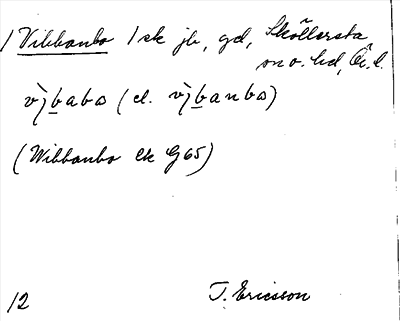 /Vibbanbo /sk jb, gd, Sköllersta
sn o. hd, Ör. l.
vìbabo (el. vìbanbo)
(Wibbanbo Ek G65)
T. Ericsson
12